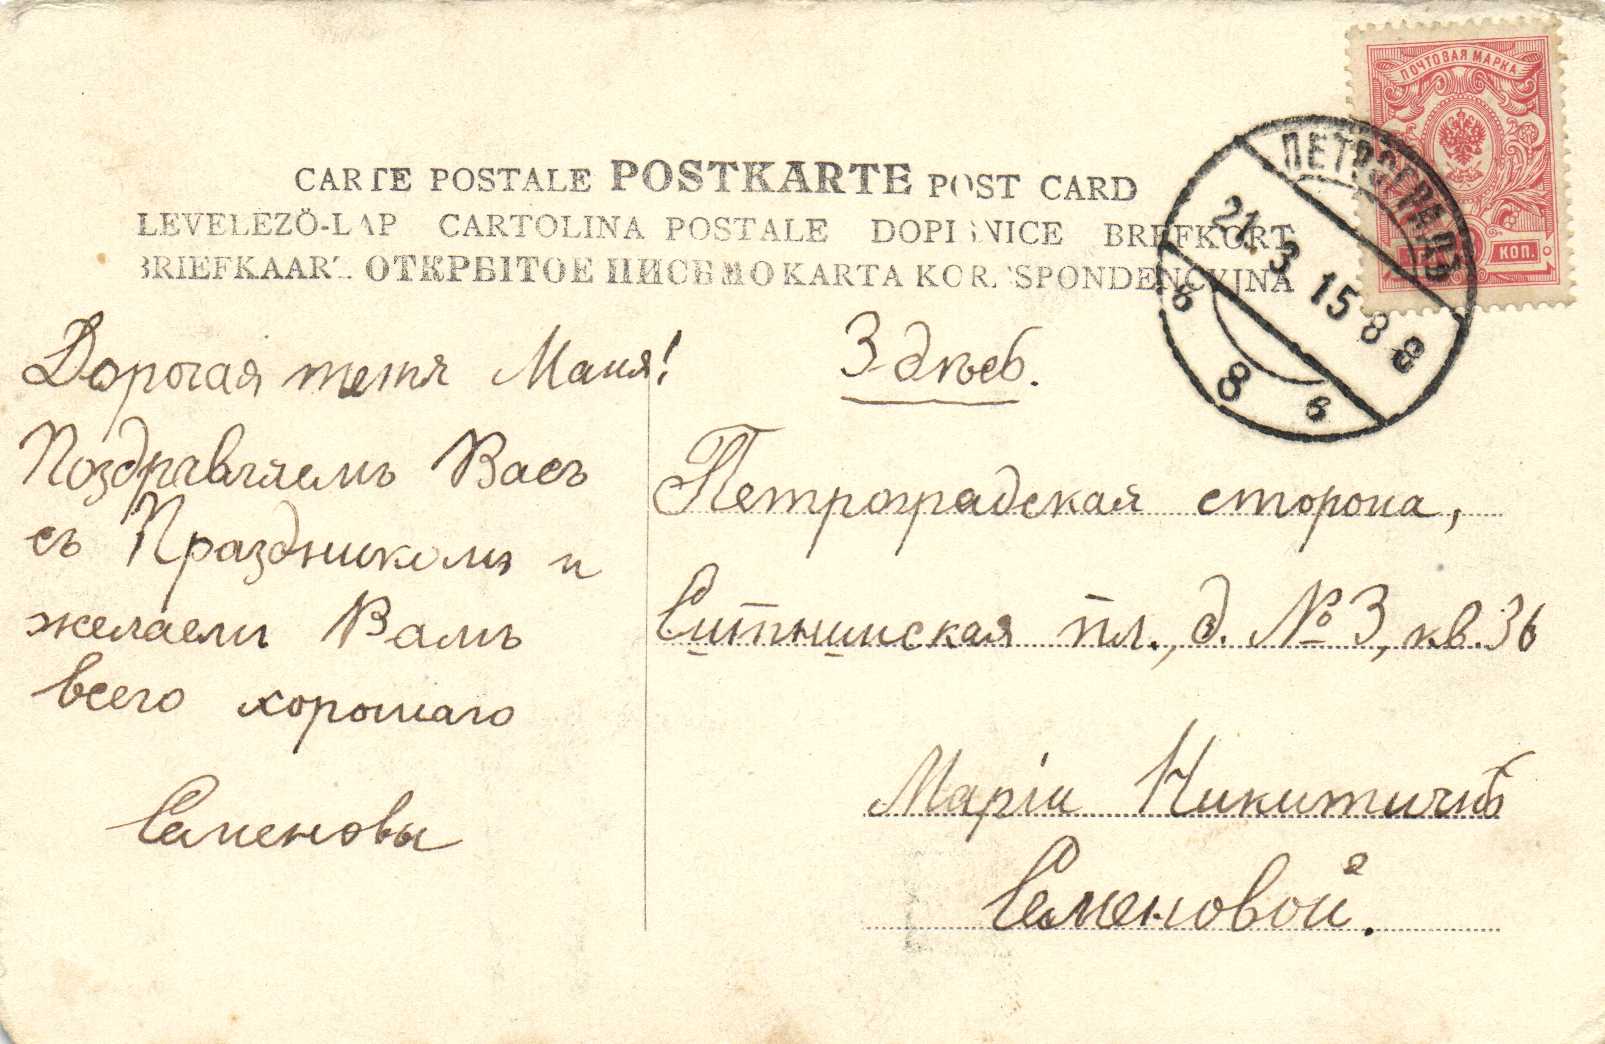 ПОЧТОВАЯ МАРКА
КОП.
ПЕТРОГРАДЪ
21.3.15 8
8
в
CARTE POSTALE POSTKARTE POST CARD
LEVELEZŐ-LAP CARTOLINA POSTALE DOPISNICE BREFKORT
BRIEFKAART ОТКРЫТОЕ ПИСЬМО KARTA KORESPONDENCYJNA
Дорогая тетя Маня!
Поздравляемъ Васъ
съ Праздникомъ и
желаемъ Вамъ
всего хорошаго
Семеновы
Здѣсь.
Петроградская сторона,
Ситнинская пл., д. № 3, кв. 36
Маріи Никитичнѣ
Семеновой.